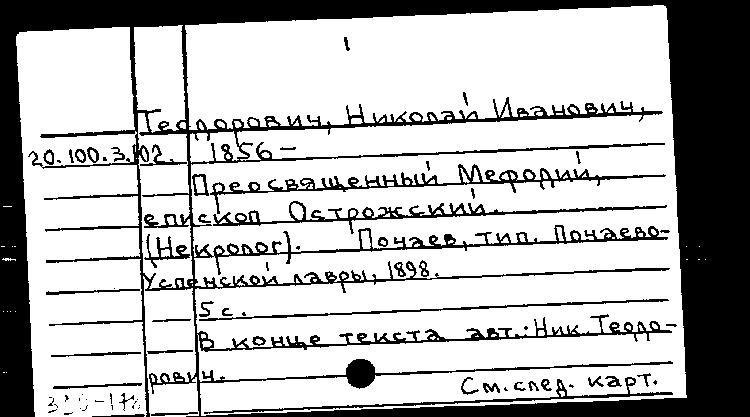 1
Теодорович, Николай Иванович,
20.100.3.102. 1856 –
Преосвященный Мефодий,
епископ Острожский.
(Некролог). Почаев, тип. Почаево-
Успенской лавры, 1898.
5 с.
В конце текста авт.: Ник. Теодо-
рович.
См. след. карт.